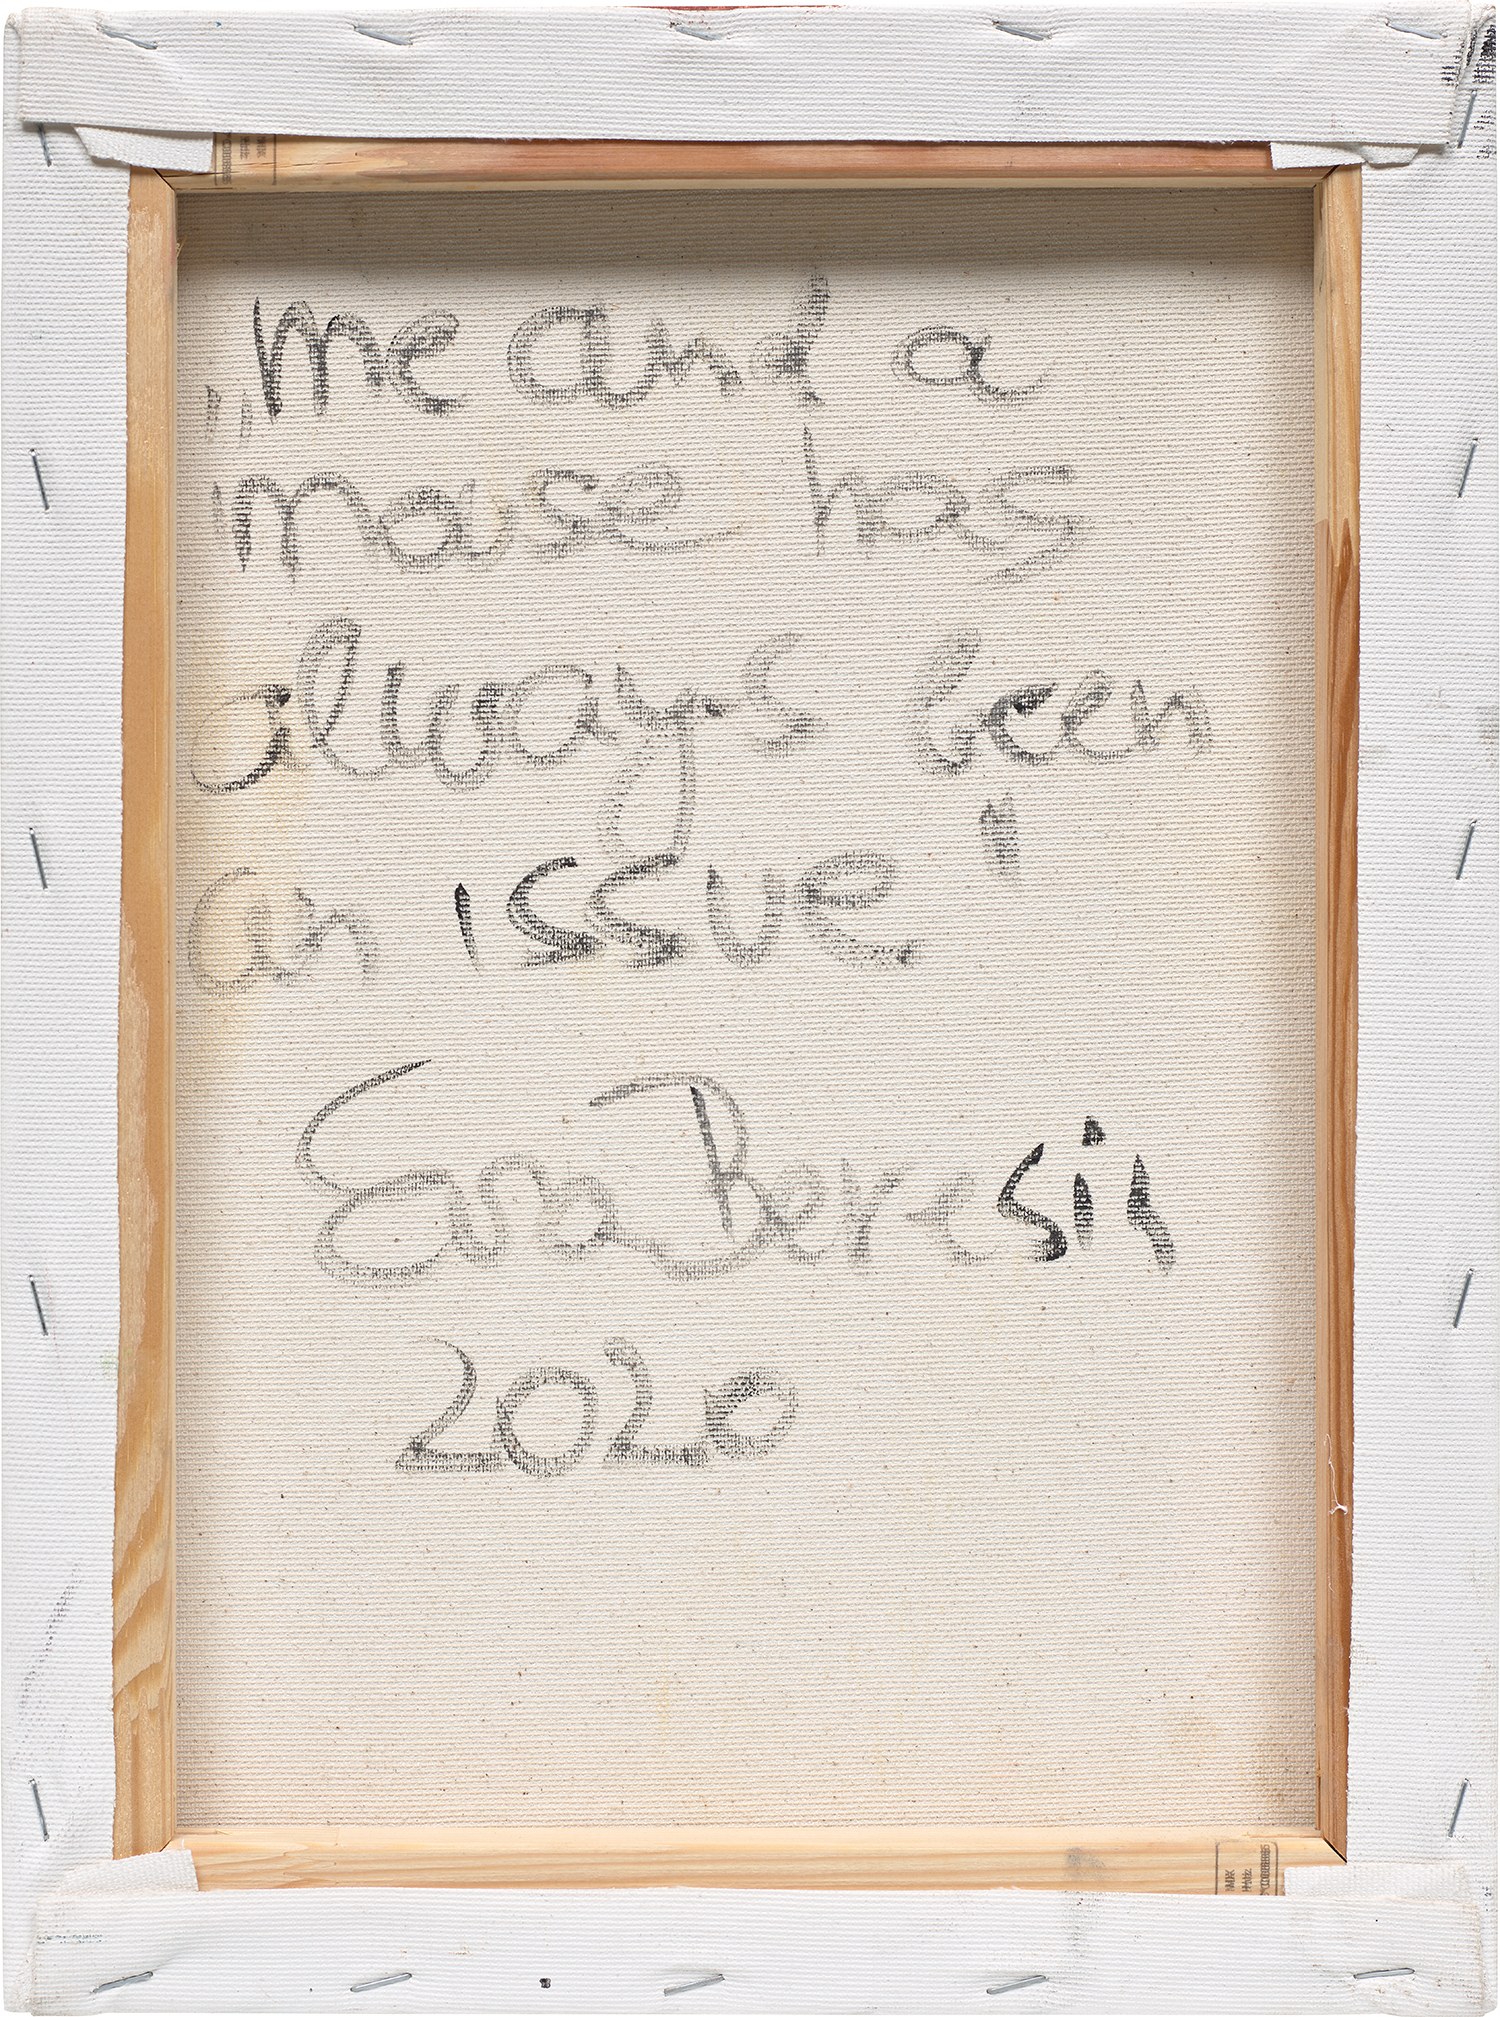 „me and a
mouse has
always been
an issue"
Eva Beresin
2020